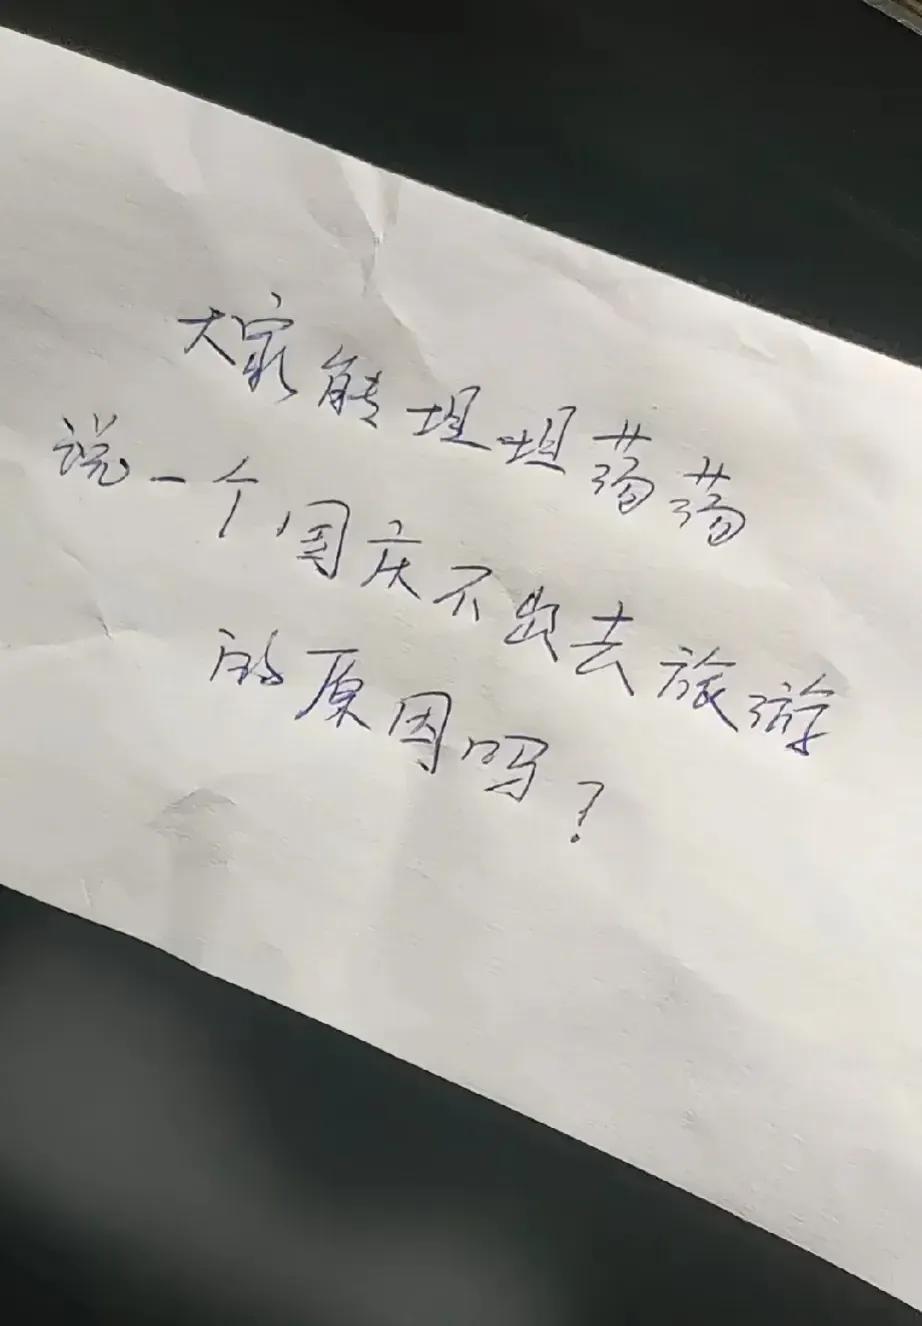 大家能坦坦荡荡
说一个国庆不出去旅游
的原因吗？